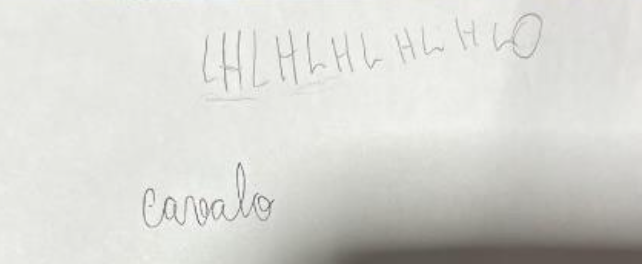 LHLHLHLHLHLO
cavalo